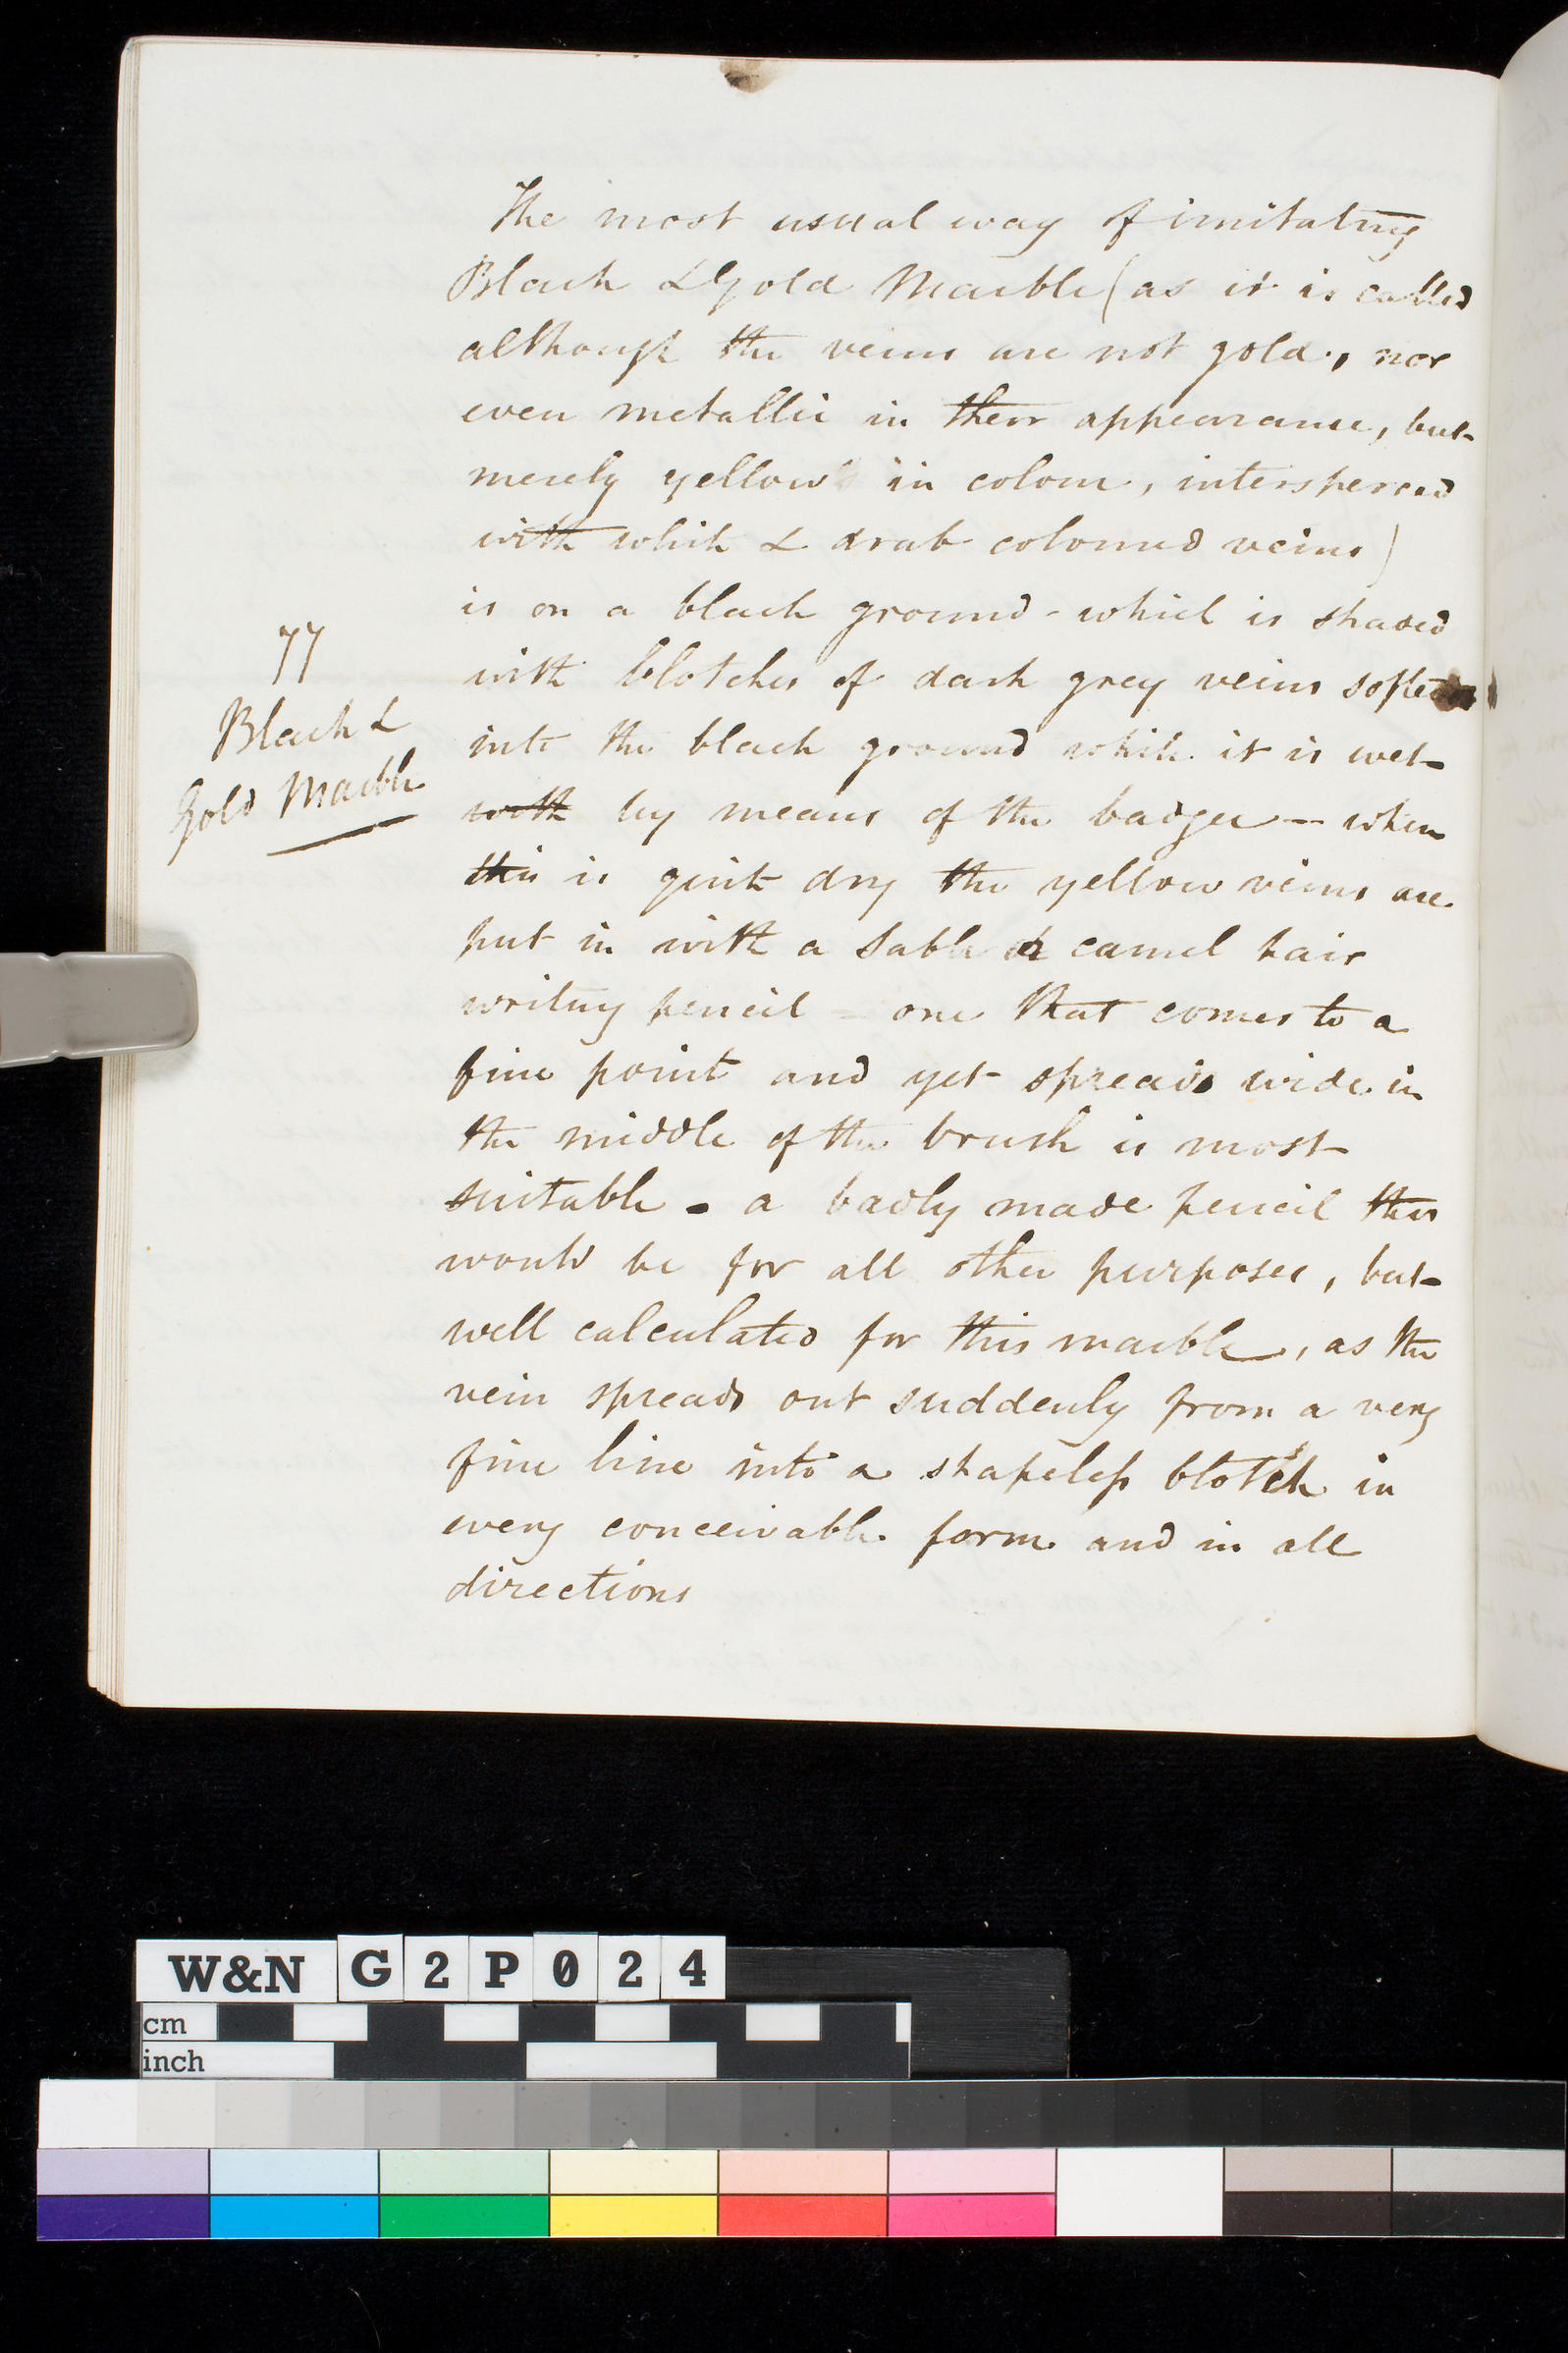 The most usual way of imitating
Black & Gold Marble (as it is called
although the veins are not gold, nor
even metallic in their appearance, but
merely yellow in colour, interspersed
with white & drab coloured veins)
is on a black ground - which is shaded
77
with blotches of dark grey veins
Black &
into the black ground while it is wet
Gold Marble
with by means of the badger - when
this is quite dry the yellow veins are
put in with a sable or camel hair
writing pencil - one that comes to a
fine point and yet spreads wide in
the middle of the brush is most
suitable - a badly made pencil this
would be for all other purposes, but
well calculated for this marble, as the
vein spreads out suddenly from a very
fine line into a shapeless blotch in
every conceivable form and in all
directions
W&N G2P024
cm
inch